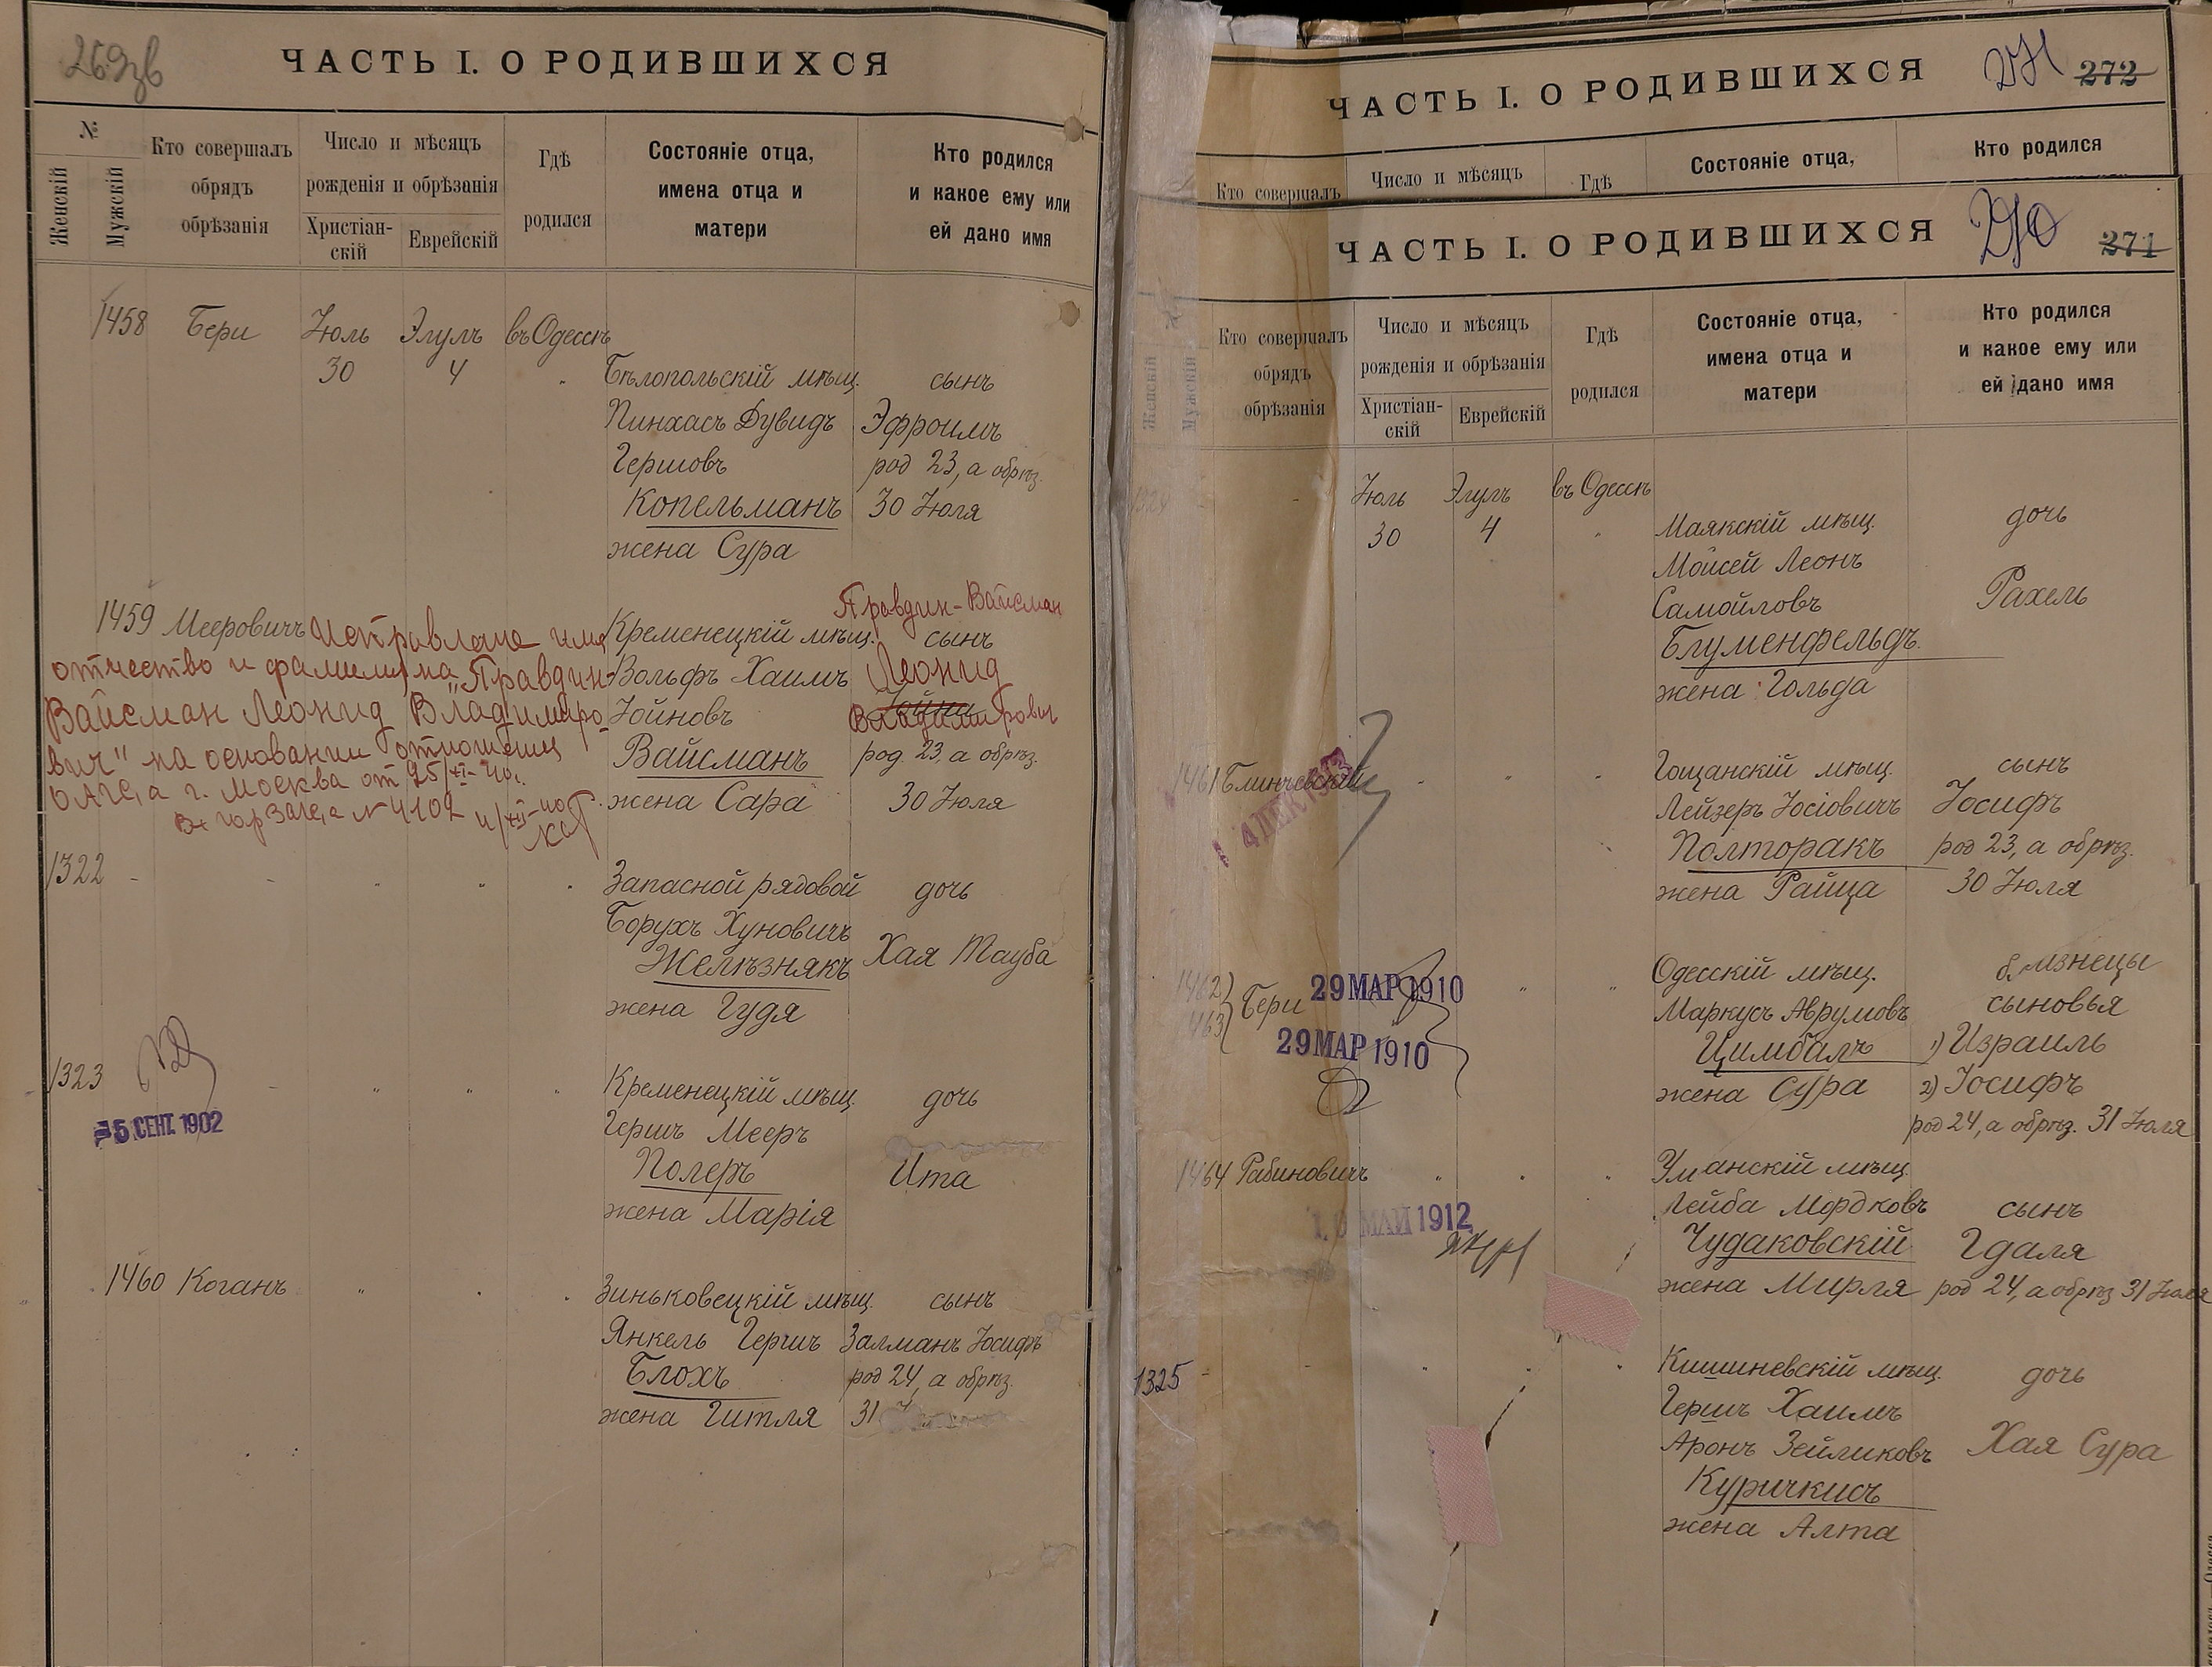 269зв
ЧАСТЬ I. О РОДИВШИХСЯ
№
Женскій
Мужскій
Кто совершалъ
обрядъ
обрѣзанія
Число и мѣсяцъ
рожденія и обрѣзанія
Христіан-
скій
Еврейскій
Гдѣ
родился
Состояніе отца,
имена отца и
матери
Кто родился
и какое ему или
ей дано имя
1458 Бери Іюль Элулъ въ Одессѣ
30 4 Бѣлопольскій мѣщ. сынъ
Пинхасъ Дувидъ Эфроимъ
Гершовъ род 23, а обрѣз.
Копельманъ 30 Іюля
жена Сура
Правдин-Вайсман
1459 Мееровичъ Кременецкій мѣщ. сынъ
Исправлено имя
отчество и фамилия на "Правдин-
Вайсман Леонид Владимиро-
вич" на основании отношения
ЗАГСа г. Москва от 25/XI-40г.
Вольфъ Хаимъ Леонид
Іойновъ Владимирович
Вайсманъ род. 23, а обрѣз.
жена Сара 30 Іюля
1322 - - Запасной рядовой дочь
Борухъ Хуновичъ
Желѣзнякъ Хая Тауба
жена Гудя
1323 - Кременецкій мѣщ. дочь
5 СЕНТ. 1902
Гершъ Мееръ
Полеръ Ита
жена Марія
1460 Коганъ Зиньковецкій мѣщ. сынъ
Янкель Гершъ Залманъ Іосифъ
Блохъ род 24, а обрѣз.
жена Гитля 31
ЧАСТЬ I. О РОДИВШИХСЯ 271 272
Кто совершалъ
Число и мѣсяцъ
Гдѣ
Состояніе отца,
Кто родился
ЧАСТЬ I. О РОДИВШИХСЯ 270 271
Женскій
Мужскій
Кто совершалъ
обрядъ
обрѣзанія
Число и мѣсяцъ
рожденія и обрѣзанія
Христіан-
скій
Еврейскій
Гдѣ
родился
Состояніе отца,
имена отца и
матери
Кто родился
и какое ему или
ей дано имя
1324 - Іюль Элулъ въ Одессѣ
30 4 Маякскій мѣщ. дочь
Мойсей Леонъ
Самойловъ Рахель
Блуменфельдъ
жена Гольда
1461 Блинчевскій Гощанскій мѣщ. сынъ
Лейзеръ Іосіовичъ Іосифъ
Полторакъ род 23, а обрѣз.
жена Райца 30 Іюля
1462
1463 Бери
29 МАР 1910
29 МАР 1910
Одесскій мѣщ. близнецы
Маркусъ Аврумовъ сыновья
Цимбалъ 1) Израиль
жена Сура 2) Іосифъ
род 24, а обрѣз. 31 Іюля
1464 Рабиновичъ Уманскій мѣщ.
Лейба Мордковъ сынъ
МАЙ 1912
Чудаковскій Гдаля
жена Мирля род 24, а обрѣз 31 Іюля
1325 - - Кишиневскій мѣщ. дочь
Гершъ Хаимъ
Аронъ Зейликовъ Хая Сура
Куричкисъ
жена Алта